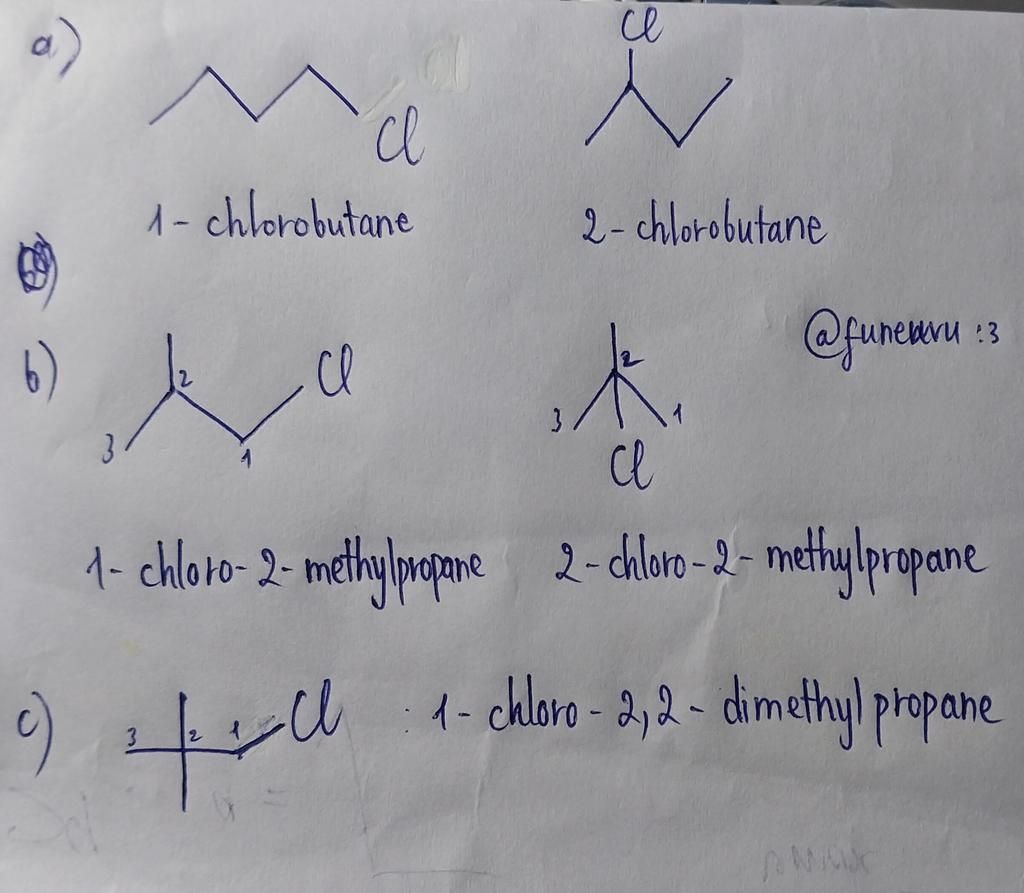 a)
Cl
Cl
1- chlorobutane
2- chlorobutane
b)
2
Cl
3
1
2
3
1
Cl
1- chloro-2-methylpropane
2-chloro-2-methylpropane
c)
3 2 1 Cl : 1- chloro-2,2-dimethylpropane